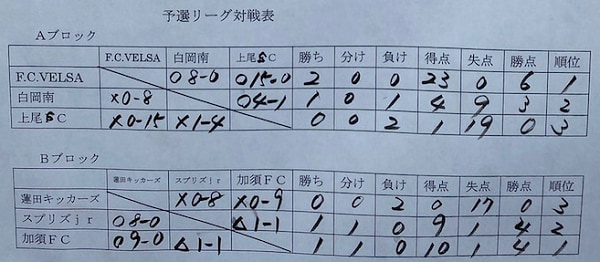 予選リーグ対戦表
Aブロック
F.C.VELSA 白岡南 上尾SC 勝ち 分け 負け 得点 失点 勝点 順位
F.C.VELSA ○8-0 ○15-0 2 0 0 23 0 6 1
白岡南 ×0-8 ○4-1 1 0 1 4 9 3 2
上尾SC ×0-15 ×1-4 0 0 2 1 19 0 3
Bブロック
蓮田キッカーズ スプリズjr 加須FC 勝ち 分け 負け 得点 失点 勝点 順位
蓮田キッカーズ ×0-8 ×0-9 0 0 2 0 17 0 3
スプリズjr ○8-0 △1-1 1 1 0 9 1 4 2
加須FC ○9-0 △1-1 1 1 0 10 1 4 1